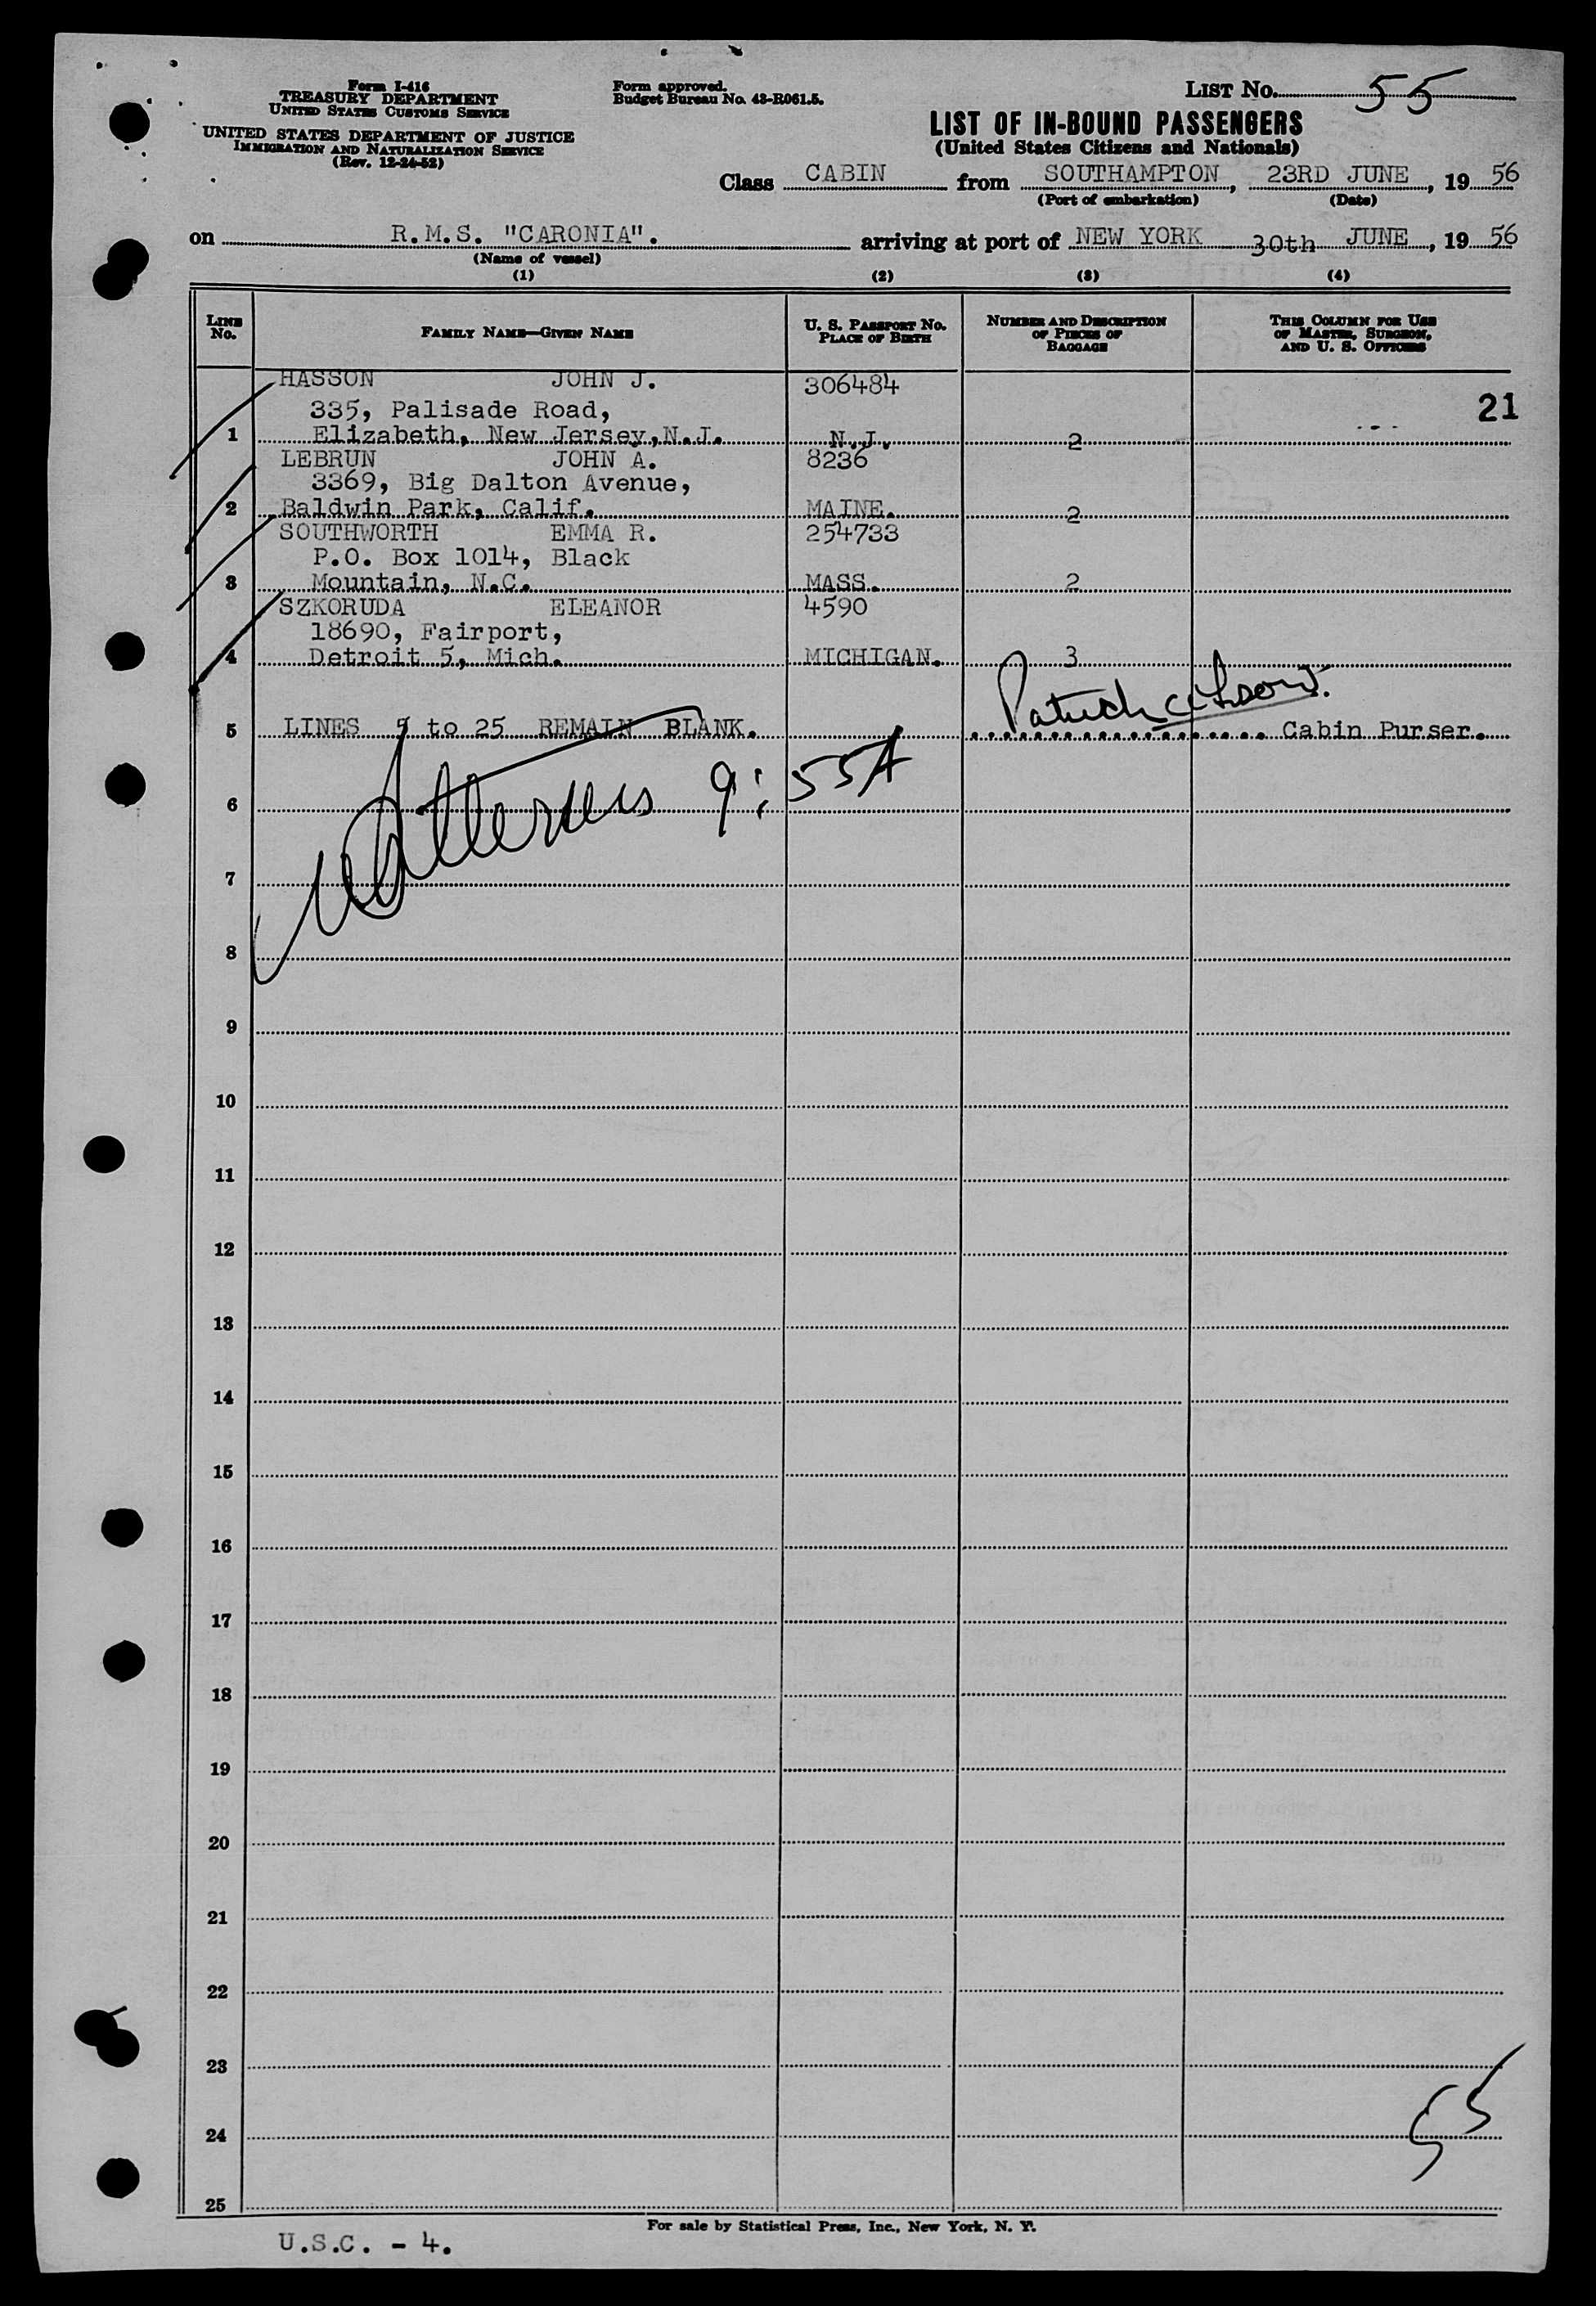 Form I-416
TREASURY DEPARTMENT
UNITED STATES CUSTOMS SERVICE
UNITED STATES DEPARTMENT OF JUSTICE
IMMIGRATION AND NATURALIZATION SERVICE
(Rev. 12-24-52)
Form approved.
Budget Bureau No. 43-R061.5.
LIST No. 55
LIST OF IN-BOUND PASSENGERS
(United States Citizens and Nationals)
Class CABIN from SOUTHAMPTON, 23RD JUNE, 19 56
(Port of embarkation) (Date)
on R.M.S. "CARONIA". arriving at port of NEW YORK 30th JUNE, 19 56
(Name of vessel)
(1) (2) (3) (4)
LINE No. FAMILY NAME—GIVEN NAME U. S. PASSPORT No. PLACE OF BIRTH NUMBER AND DESCRIPTION OF PIECES OF BAGGAGE THIS COLUMN FOR USE OF MASTER, SURGEON, AND U. S. OFFICERS
HASSON JOHN J. 306484
335, Palisade Road, 21
1 Elizabeth, New Jersey, N.J. N.J. 2
LEBRUN JOHN A. 8236
3369, Big Dalton Avenue,
2 Baldwin Park, Calif. MAINE. 2
SOUTHWORTH EMMA R. 254733
P.O. Box 1014, Black
3 Mountain, N.C. MASS. 2
SZKORUDA ELEANOR 4590
18690, Fairport,
4 Detroit 5, Mich. MICHIGAN. 3
5 LINES 5 to 25 REMAIN BLANK. Cabin Purser.
9:55A
6
7
8
9
10
11
12
13
14
15
16
17
18
19
20
21
22
23
24
55
25
For sale by Statistical Press, Inc., New York, N. Y.
U.S.C. - 4.